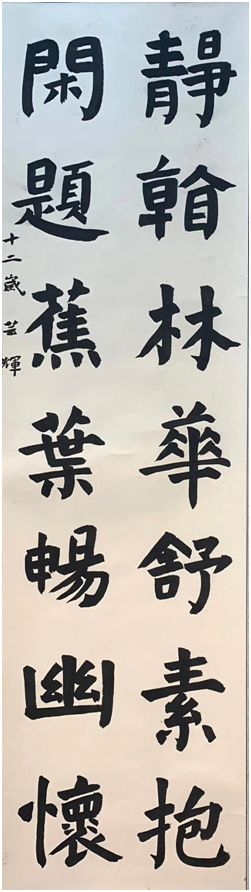 靜林華舒素抱
閑題蕉葉暢幽懷
十二歲 芸輝